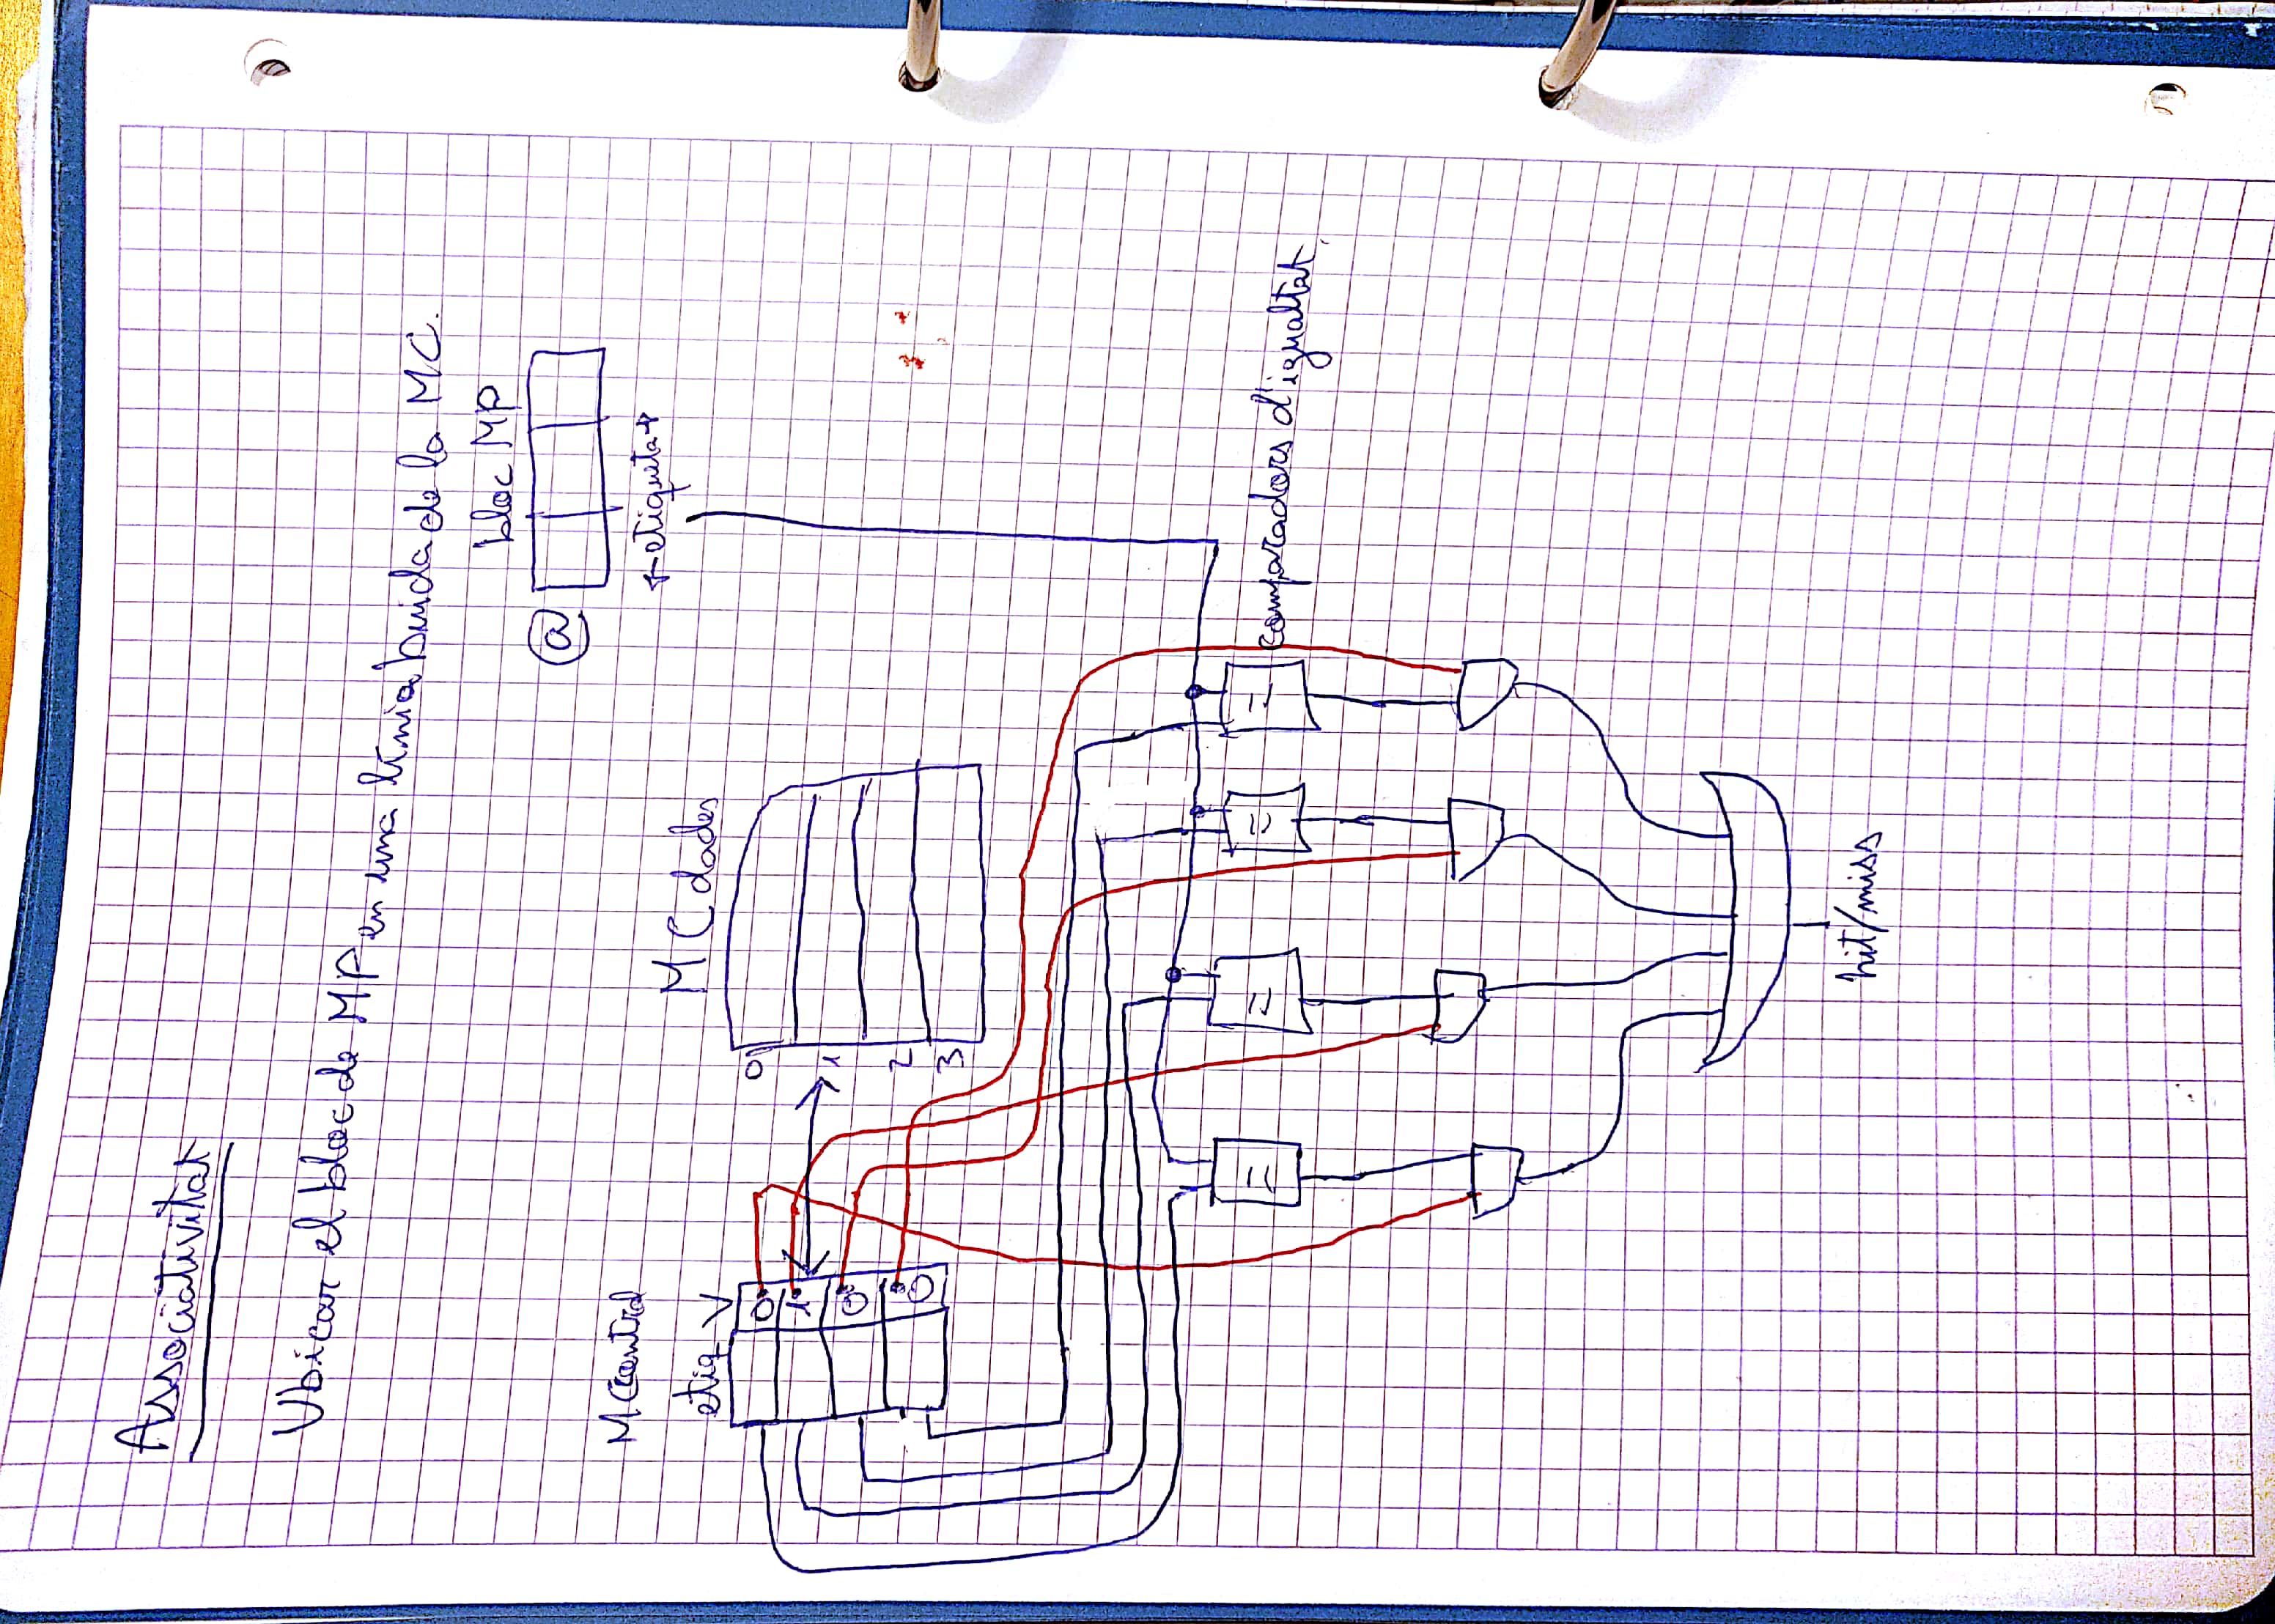 Associativitat
Ubicar el bloc de MP en una línia buida de la MC.
bloc MP
@
etiqueta
MC control
etiq V
MC dades
0
1
0
0
0
1
2
3
= = = =
comparadors d'igualtat.
hit/miss